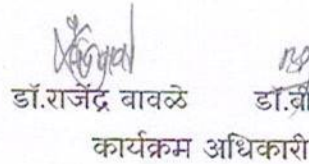 डॉ.राजेंद्र बावळे डॉ.बी
कार्यक्रम अधिकारी